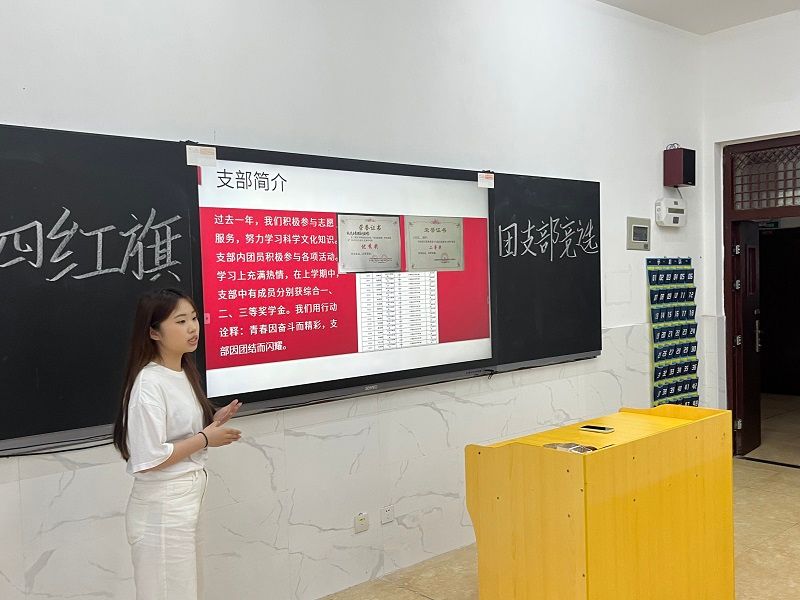 四红旗
团支部竞选
支部简介
过去一年，我们积极参与志愿
服务，努力学习科学文化知识。
支部内团员积极参与各项活动。
学习上充满热情，在上学期中，
支部中有成员分别获综合一、
二、三等奖学金。我们用行动
诠释：青春因奋斗而精彩，支
部因团结而闪耀。
荣誉证书
荣誉证书